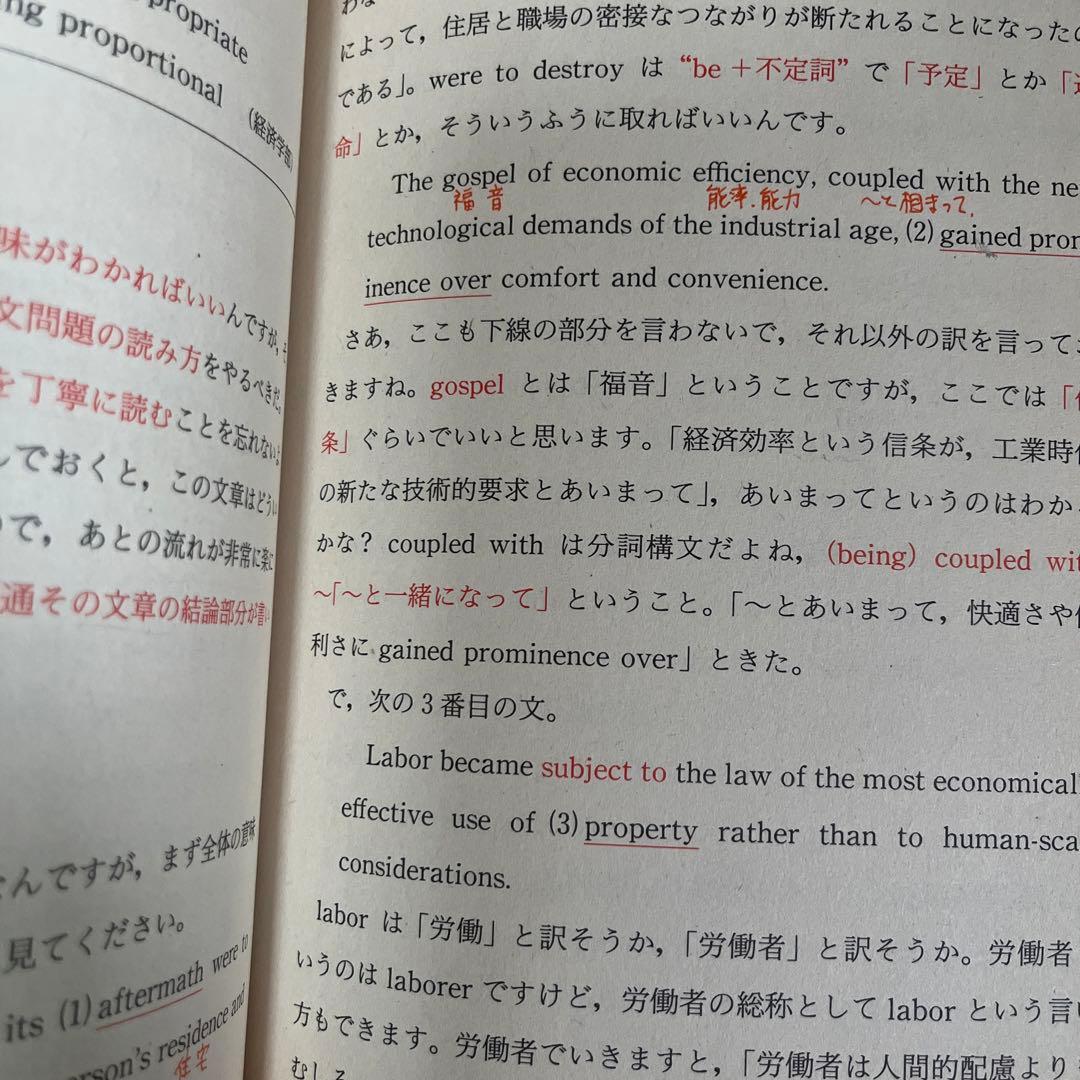 propriate
proportional
(経済学部)
味がわかればいいんですが, そ
文問題の読み方をやるべきだ。
を丁寧に読むことを忘れない。
しでおくと, この文章はどうい
で, あとの流れが非常に楽に
通その文章の結論部分が書い
なんですが, まず全体の意味
見てください。
its (1) aftermath were to
erson's residence and
住宅
によって, 住居と職場の密接なつながりが断たれることになったの
である」。were to destroy は “be＋不定詞” で「予定」とか「
命」とか, そういうふうに取ればいいんです。
The gospel of economic efficiency, coupled with the ne
福音 能率.能力 〜と相まって,
technological demands of the industrial age, (2) gained prom
inence over comfort and convenience.
さあ, ここも下線の部分を言わないで, それ以外の訳を言って
きますね。gospel とは「福音」ということですが, ここでは「
条」ぐらいでいいと思います。「経済効率という信条が, 工業時代
の新たな技術的要求とあいまって」, あいまってというのはわか
かな? coupled with は分詞構文だよね, (being) coupled wit
〜「〜と一緒になって」ということ。「〜とあいまって, 快適さや
利さに gained prominence over」ときた。
で, 次の 3 番目の文。
Labor became subject to the law of the most economical
effective use of (3) property rather than to human-sca
considerations.
labor は「労働」と訳そうか, 「労働者」と訳そうか。労働者
いうのは laborer ですけど, 労働者の総称として labor という言い
方もできます。労働者でいきますと, 「労働者は人間的配慮より
むしろ